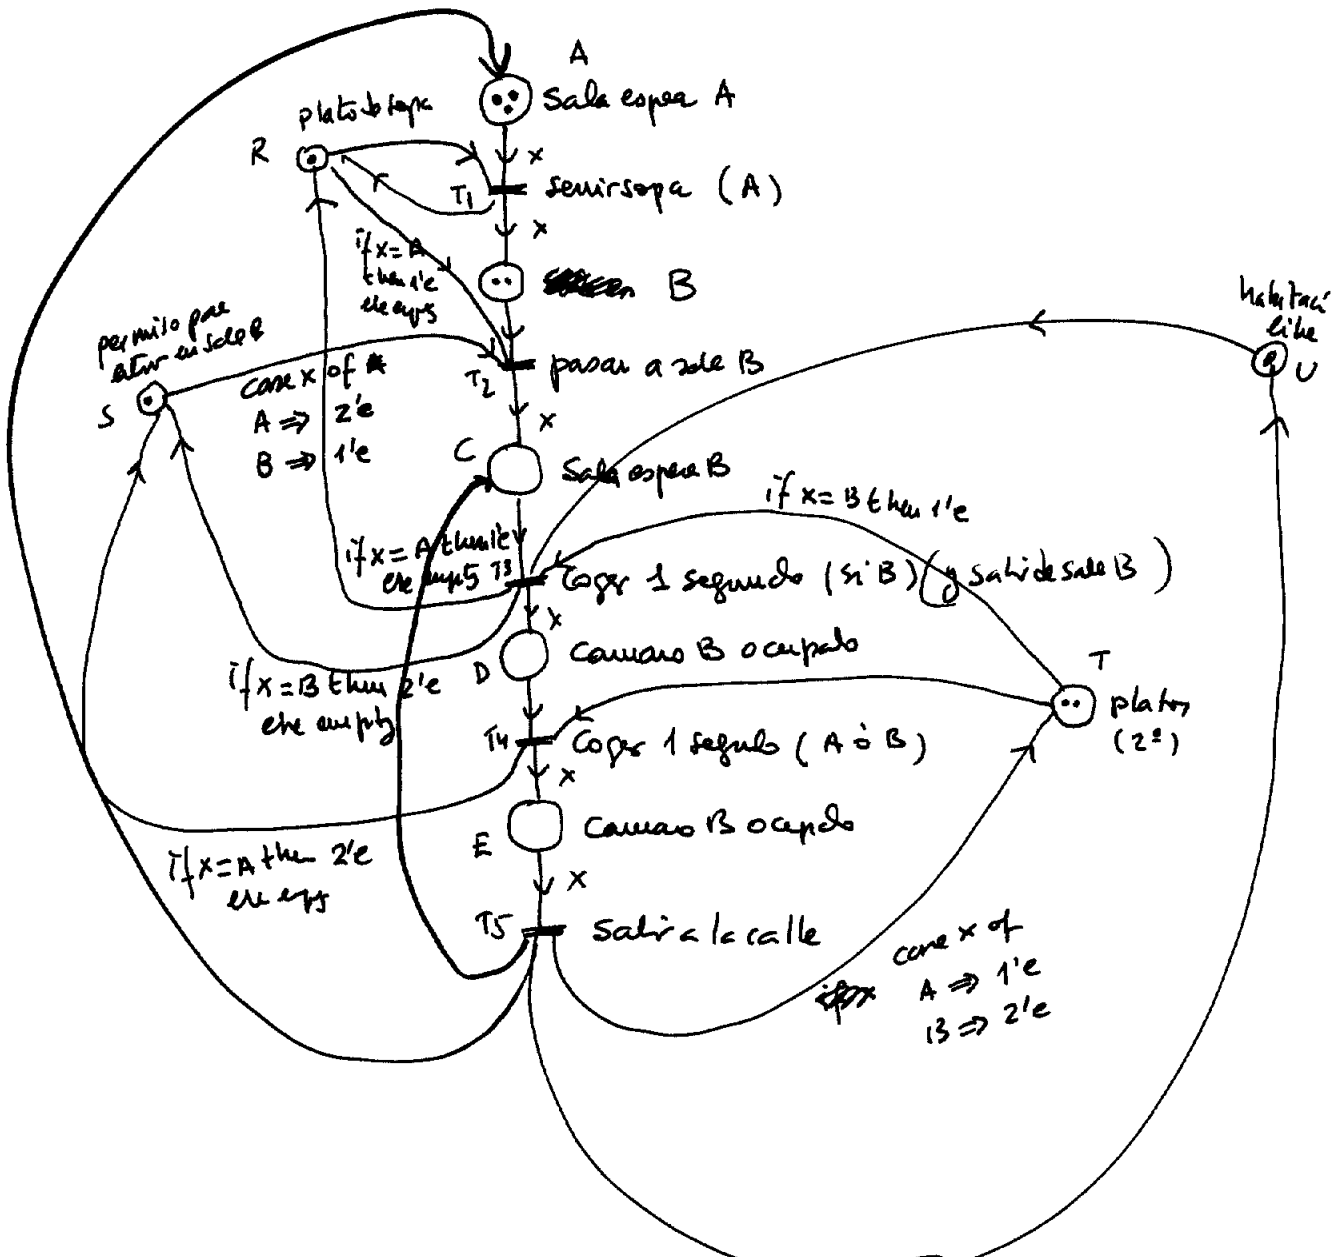 A
Sala espera A
plato de sopa
R
x
T1
servir sopa (A)
x
if x=A
then 1'e
else empty
B
habitació
libre
U
permiso para
entrar en sala B
S
case x of
A ⇒ 2'e
B ⇒ 1'e
T2
pasar a sala B
x
C
Sala espera B
if x=B then 1'e
if x=A then 1'e
else empty
T3
Coger 1 segundo (si B) (y salir de sala B)
x
D
if x=B then 2'e
else empty
T
platos
(2º)
T4
Coger 1 segundo (A ó B)
x
E
if x=A then 2'e
else empty
x
T5
Salir a la calle
case x of
A ⇒ 1'e
B ⇒ 2'e